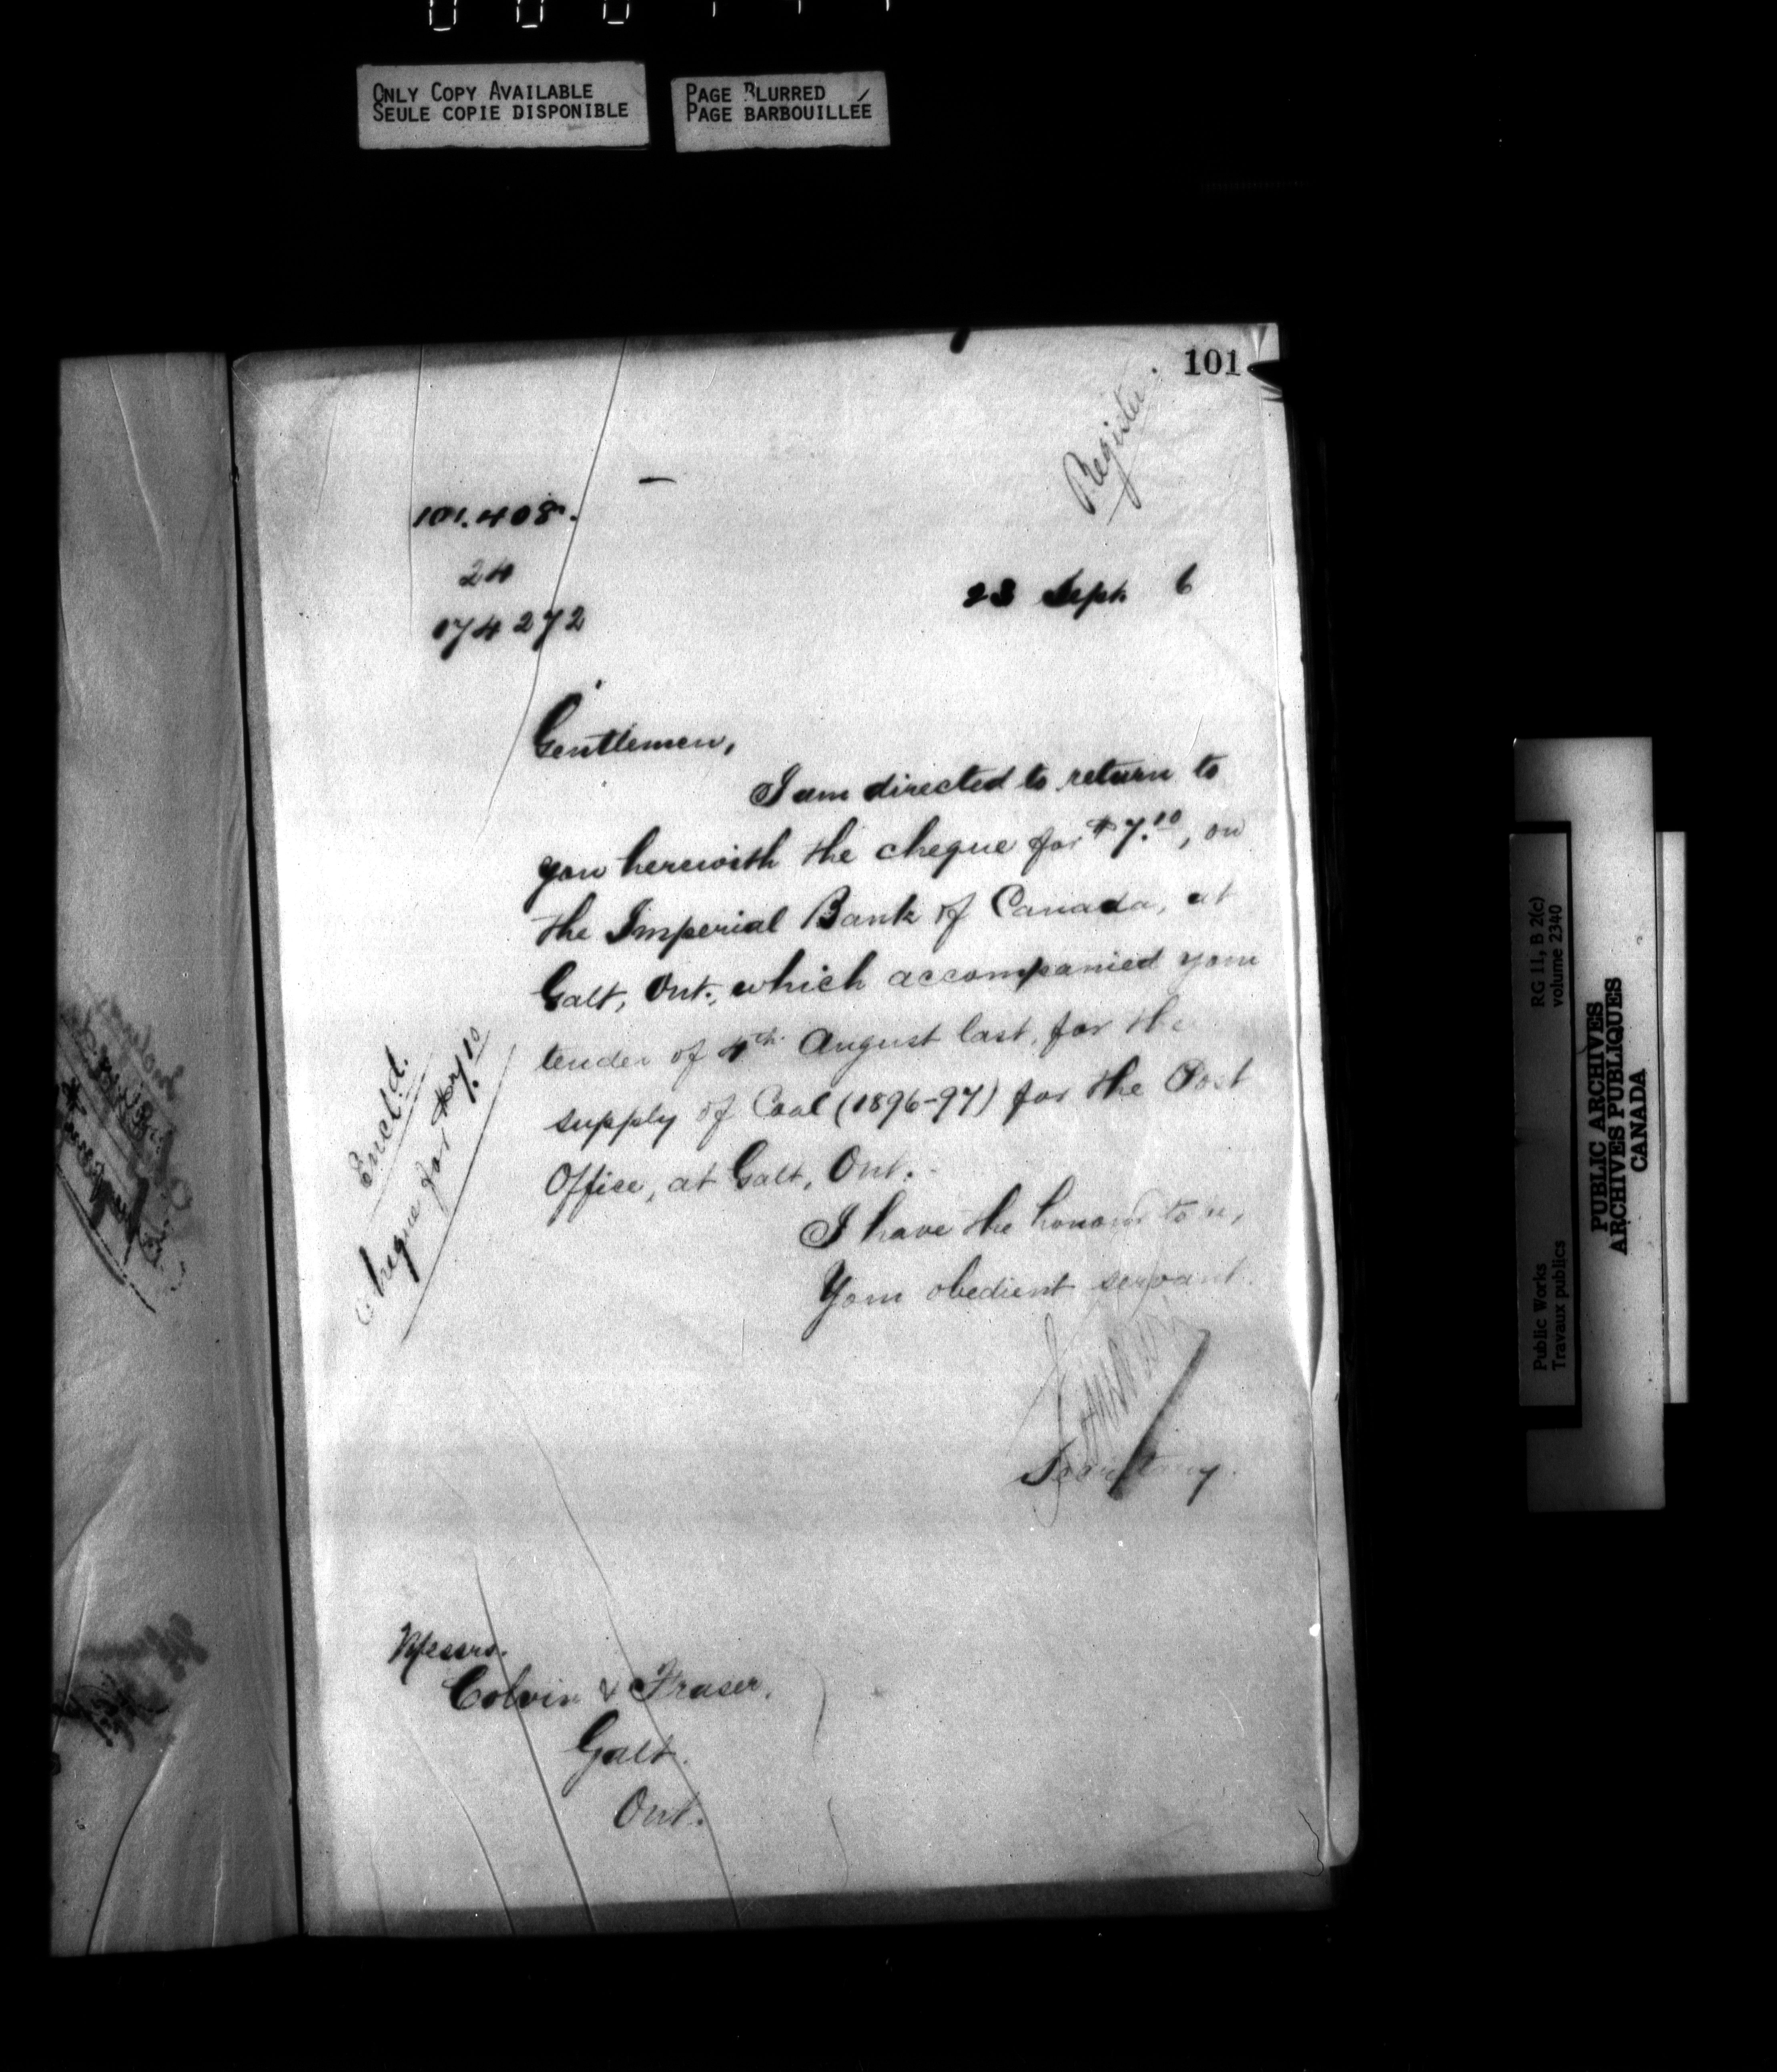 ONLY COPY AVAILABLE
SEULE COPIE DISPONIBLE
PAGE BLURRED
PAGE BARBOUILLÉE
101
Register.
101.408.
24
174272
23 Sept. 6
Gentlemen,
I am directed to return to
you herewith the cheque for $7.10, on
the Imperial Bank of Canada, at
Galt, Ont., which accompanied your
tender of 4th August last, for the
supply of Coal (1896-97) for the Post
Office, at Galt, Ont.
Encl'd.
Cheque for $7.10
I have the honour to be,
Your obedient servant.
Secretary.
Messrs.
Colvin & Fraser,
Galt.
Ont.
RG 11, B 2(c)
volume 2340
Public Works
Travaux publics
PUBLIC ARCHIVES
ARCHIVES PUBLIQUES
CANADA